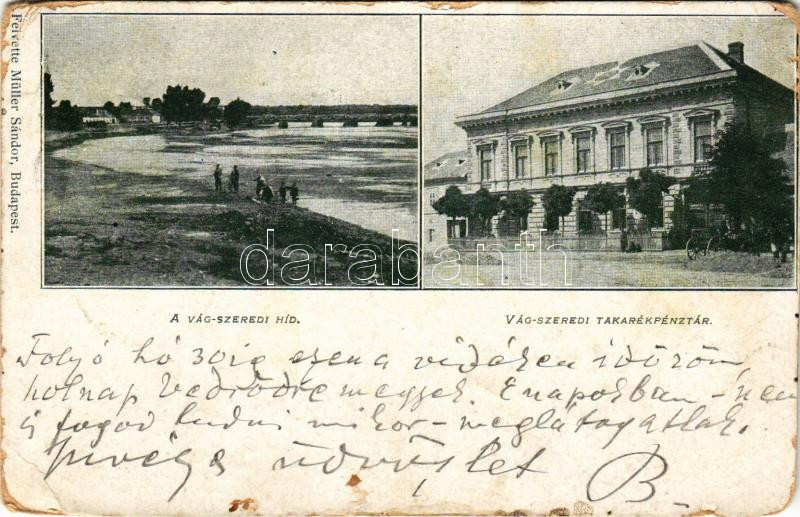 Felvette Müller Sándor, Budapest.
darabanth
A VÁG-SZEREDI HÍD.
VÁG-SZEREDI TAKARÉKPÉNZTÁR.
Folyó hó 30ig ezen a vidéken időzöm,
holnap Vedrődre megyek. E napokban - nem
is fogod tudni mikor - meglátogatlak.
Szives üdvözlet B.